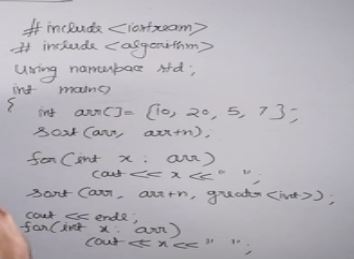 # include <iostream>
# include <algorithm>
using namespace std;
int main()
{
int arr[]= {10, 20, 5, 7};
sort (arr, arr+n);
for (int x : arr)
cout << x << " ";
sort (arr, arr+n, greater <int>);
cout << endl;
for (int x : arr)
cout << x << " ";